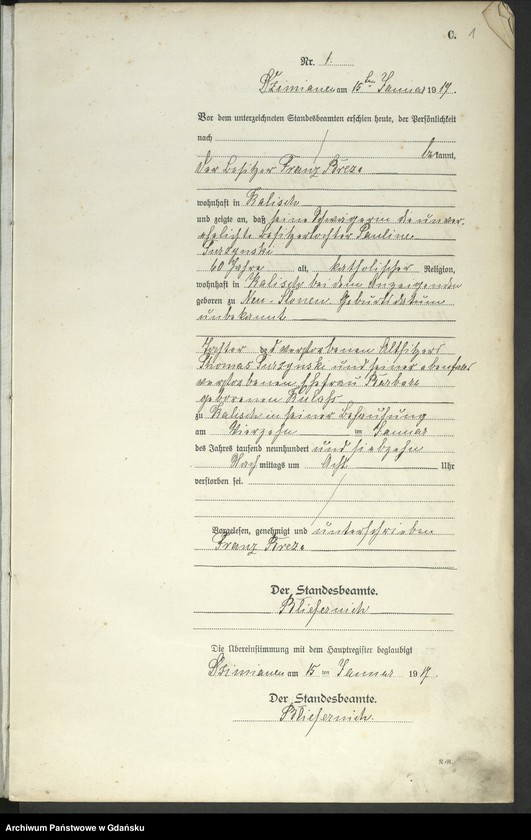 C. 1
Nr. 1.
Dzimianen am 15ten Januar 1917.
Vor dem unterzeichneten Standesbeamten erschien heute, der Persönlichkeit
nach
bekannt,
der Besitzer Franz Breza
wohnhaft in Kalisch
und zeigte an, daß seine Schwägerin die unver-
ehelichte Besitzertochter Pauline
60 Jahre alt, katholischer Religion,
wohnhaft in Kalisch bei dem Anzeigenden
geboren zu Neu - Geburtsdatum
unbekannt
Tochter des verstorbenen Altsitzers
Thomas und seiner ebenfalls
verstorbenen Ehefrau Barbara
geborenen
zu Kalisch in seiner Behausung
am Vierzehn ten Januar
des Jahres tausend neunhundert und siebzehn
Nachmittags um Acht Uhr
verstorben sei.
Vorgelesen, genehmigt und unterschrieben
Franz Breza
Der Standesbeamte.
Die Übereinstimmung mit dem Hauptregister beglaubigt
Dzimianen am 15 ten Januar 1917.
Der Standesbeamte.
Archiwum Państwowe w Gdańsku